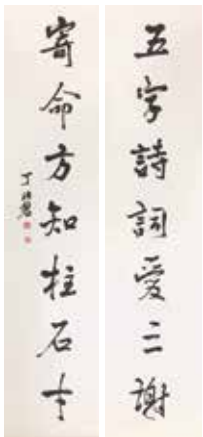 五字詩詞愛二謝
寄命方知柱石士